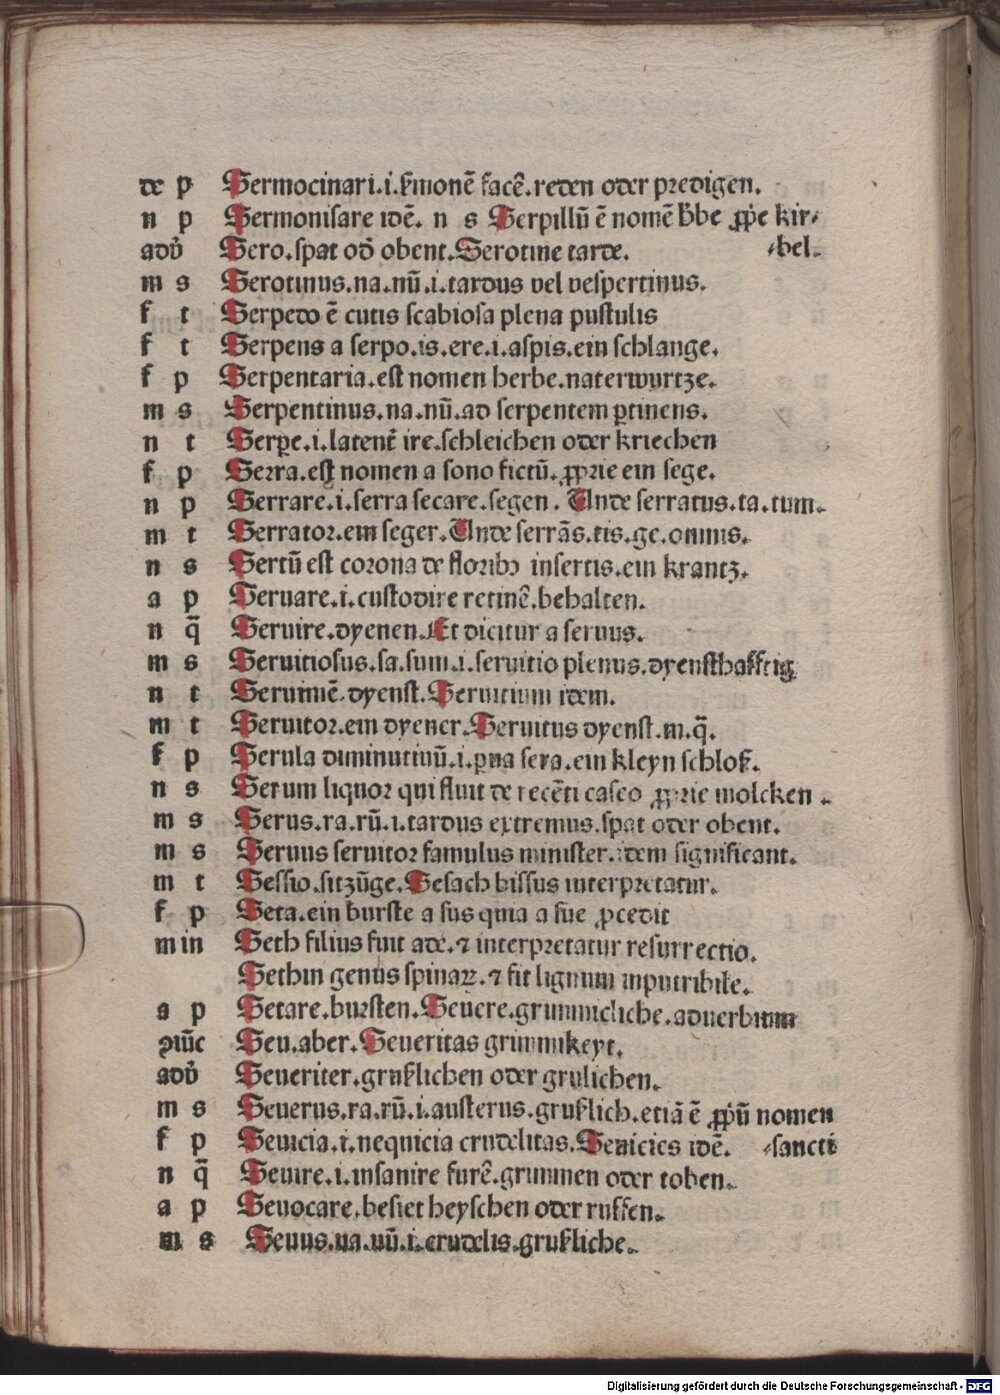 de p Sermocinari.i.ẜmonē facē.reden oder predigen.
n p Sermonisare idē. n s Serpillū ē nomē h̄be ꝓṗe kir⸗
adv̉ Sero.spat od̄ obent.Serotine tarde. ⸗bel.
m s Serotinus.na.nū.i.tardus vel vespertinus.
f t Serpedo ē cutis scabiosa plena pustulis
f t Serpens a serpo.is.ere.i.aspis.ein schlange.
f p Serpentaria.est nomen herbe.naterwurtze.
m s Serpentinus.na.nū.ad serpentem ꝑtinens.
n t Serpe.i.latent̄ ire.schleichen oder kriechen
f p Serra.est nomen a sono fictū.ꝓprie ein sege.
n p Serrare.i.serra secare.segen. Unde serratus.ta.tum.
m t Serrator.ein seger.Unde serrās.tis.gc.omnis.
n s Sertū est corona de floribꝫ insertis.ein krantz.
a p Seruare.i.custodire retinē.behalten.
n q̄ Seruire.dyenen.Et dicitur a seruus.
m s Seruitiosus.sa.sum.i.seruitio plenus.dyensthafftig
n t Seruimē.dyenst.Seruitium idem.
m t Seruitor.ein dyener.Seruitus dyenst.m.q̄.
f p Serula diminutiuū.i.ꝑua sera.ein kleyn schloß.
n s Serum liquor qui fluit de recēti caseo ꝓprie molcken.
m s Serus.ra.rū.i.tardus extremus.spat oder obent.
m s Seruus seruitor famulus minister.idem significant.
m t Sessio.sitzūge.Sesach bissus interpretatur.
f p Seta.ein burste a sus quia a sue ꝓcedit
m in Seth filius fuit ade.⁊ interpretatur resurrectio.
Sethin genus spinaꝝ.⁊ fit lignum inputribile.
a p Setare.bursten.Seuere.grimmicliche.aduerbium
ꝯiūc Seu.aber.Seueritas grimmikeyt.
adv̉ Seueriter.grußlichen oder grulichen.
m s Seuerus.ra.rū.i.austerus.grußlich.etiā ē ꝓṗū nomen
f p Seuicia.i.nequicia crudelitas.Seuicies idē. ⸗sancti
n q̄ Seuire.i.insanire furē.grimmen oder toben.
a p Seuocare.besiet heyschen oder ruffen.
m s Seuus.ua.uū.i.crudelis.grußliche.
Digitalisierung gefördert durch die Deutsche Forschungsgemeinschaft - DFG